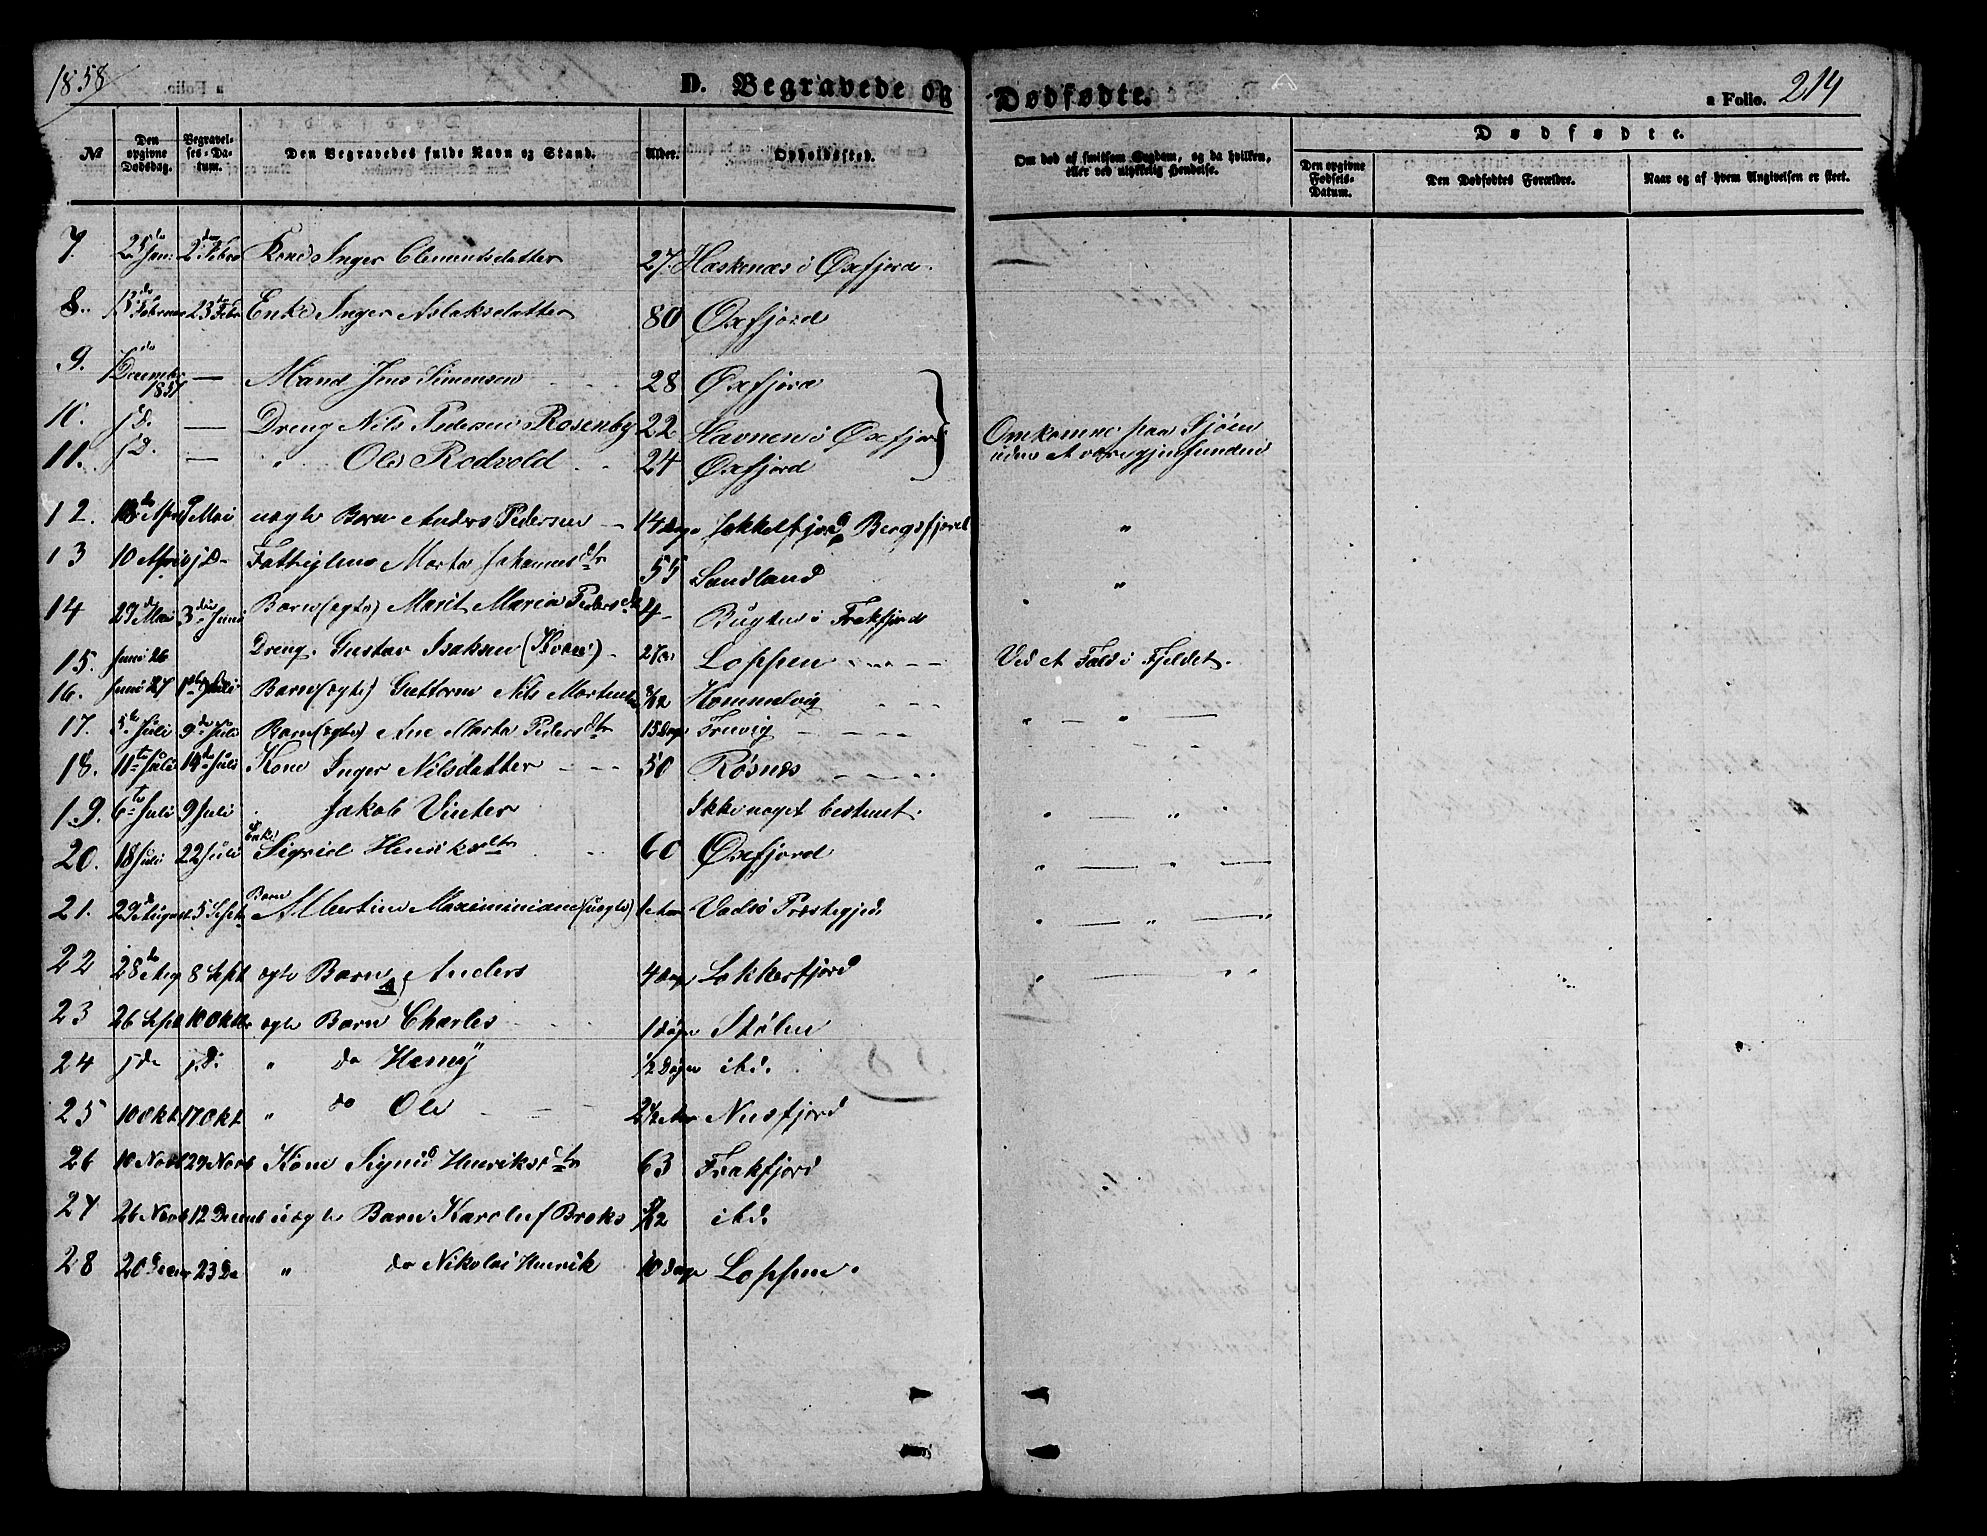 1858
D. Begravede og Dødfødte.
a Folio. 214
Dødfødte.
№ Den opgivne Dødsdag. Begravelses-Datum. Den Begravedes fulde Navn og Stand. Alder. Opholdssted. Om død af smitsom Sygdom, og da hvilken, eller ved ulykkelig Hendelse. Den opgivne Fødsels-Datum. Den Dødfødtes Forældre. Naar og af hvem Angivelsen er skeet.
7. 25 Jan: 2den Febr Kone Inger Clementsdatter 27. Haskenæs i Øxfjord.
8. 13de Februar 23 Febr Enke Inger Aslaksdatter 80 Øxfjord
9. December 1857 — Mand Jens Simonsen 28 Øxfjord
10. jd. — Dreng Nils Pedersen Rosenby 22 Havnen i Øxfjord Omkomne paa Sjøen
11. jd. — " Ole Rodvold 24 Øxfjord uden at være gjenfunden
12. 18de April 9 Mai uægte Barn Anders Pedersen 14 Dage Jøkkelfjord Bergsfjord "
13 10 April jd Fattiglem Marta Johannesdtr 55 Sandland "
14 29de Mai 3die Juni Barn (ægte) Marit Maria Pedersdtr 4 Bugten i Frakfjord
15. Juni 26 Dreng. Gustav Isaksen (Kvæn) 27 Loppen Ved et Fald i Fjeldet.
16. Juni 27 1ste Juli Barn (ægte) Guttorm Nils Mortensen /12 Hommelvig
17. 5te Juli 9de Juli Barn (ægte) Ane Marta Pedersdtr 15 Dage Truvig " — " —
18. 11te Juli 14de Juli Kone Inger Nilsdatter 50 Røsnæs
19. 6te Juli 9 Juli Jakob Vinter Ikke noget bestemt. " — " "
20. 18 Juli 22 Juli Enke Sigrid Henriksdtr 60 Øxfjord " — " —
21. 29de August 5 Sept. Barn Albertine Maximiniane (uægte) 1 Aar Vadsø Præstegjed. " — " — "
22 28de Aug 8 Sept ægte Barn Anders 4 Dage Lokkerfjord " — " "
23 26 Sept 10 Oktbr ægte Barn Charles 1 Døgn Stølen
24 jde j.d. " do Henry 1/2 Døgn ibd.
25 10 Okt 17 Okt " do Ole 2 1/2 Aar Nusfjord
26 10 Novb 29 Novb Kone Sigrid Henriksdtr 63 Frakfjord
27 26 Novb 12 Decmb uægte Barn Karoluf Broks /12 ibd.
28 20 Decbr 23 De " do Nikolai Henrik 10 Dage Loppen.